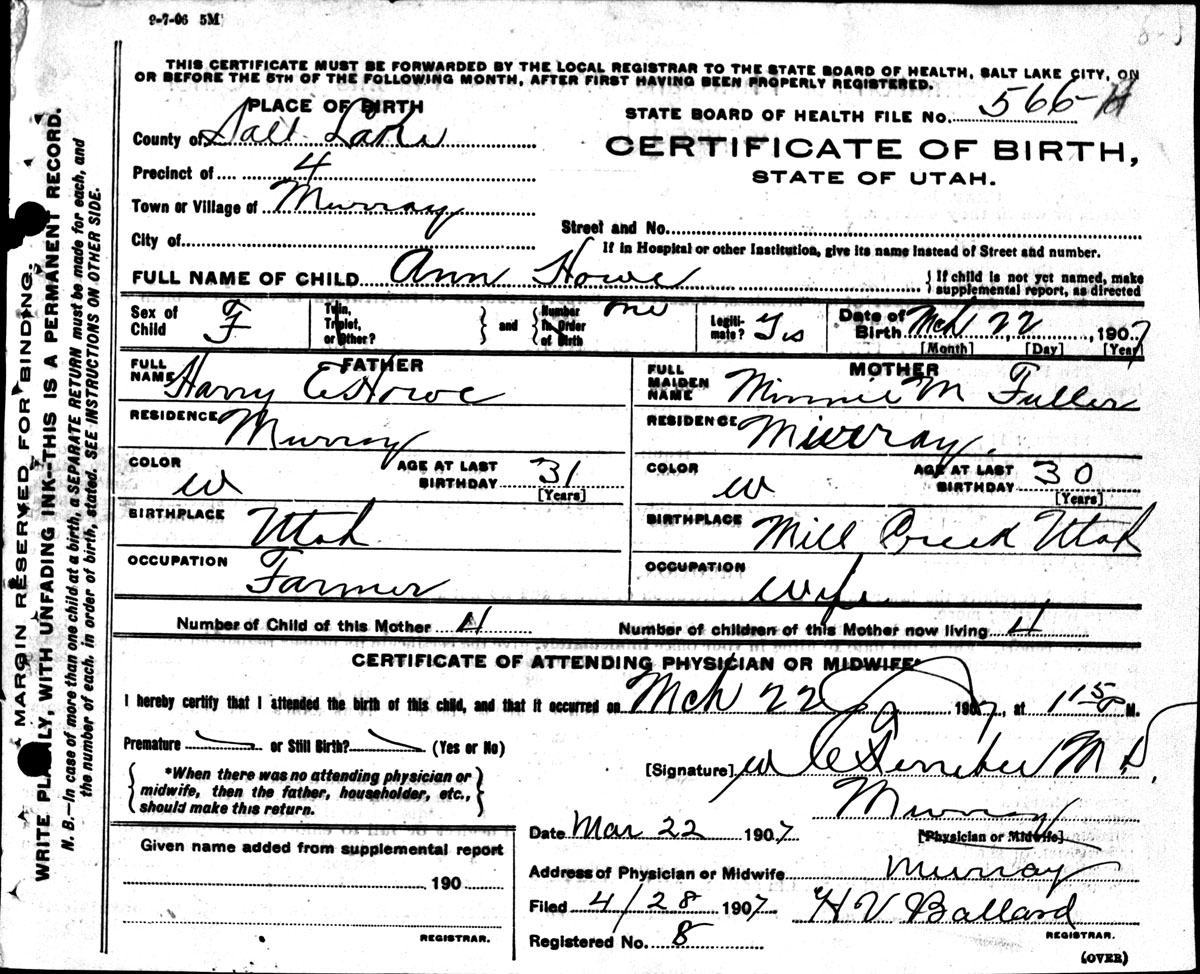 9-7-06 5M
THIS CERTIFICATE MUST BE FORWARDED BY THE LOCAL REGISTRAR TO THE STATE BOARD OF HEALTH, SALT LAKE CITY, ON
OR BEFORE THE 5TH OF THE FOLLOWING MONTH, AFTER FIRST HAVING BEEN PROPERLY REGISTERED.
PLACE OF BIRTH
STATE BOARD OF HEALTH FILE No. 566-H
County of Salt Lake
CERTIFICATE OF BIRTH,
STATE OF UTAH.
Precinct of 4
Town or Village of Murray
Street and No.
City of
If in Hospital or other Institution, give its name instead of Street and number.
FULL NAME OF CHILD Ann Howe
If child is not yet named, make
supplemental report, as directed
Sex of Child F
Twin, Triplet, or Other?
and
Number In Order of Birth one
Legiti-mate? Yes
Date of Birth Mch 22, 1907
[Month] [Day] [Year]
FATHER
FULL NAME Harry E Howe
MOTHER
FULL MAIDEN NAME Minnie M Fuller
RESIDENCE Murray
RESIDENCE Murray
COLOR W
AGE AT LAST BIRTHDAY 31
[Years]
COLOR W
AGE AT LAST BIRTHDAY 30
[Years]
BIRTHPLACE Utah
BIRTHPLACE Mill Creek Utah
OCCUPATION Farmer
OCCUPATION Wife
Number of Child of this Mother 4
Number of children of this Mother now living 4
CERTIFICATE OF ATTENDING PHYSICIAN OR MIDWIFE
I hereby certify that I attended the birth of this child, and that it occurred on Mch 22 1907, at M.
Premature or Still Birth? (Yes or No)
*When there was no attending physician or
midwife, then the father, householder, etc.,
should make this return.
[Signature] M D.
Murray
[Physician or Midwife]
Date Mar 22 1907
Given name added from supplemental report
190
REGISTRAR.
Address of Physician or Midwife Murray
Filed 4/28 1907 H V Ballard
REGISTRAR.
Registered No. 8
(OVER)
MARGIN RESERVED FOR BINDING.
WRITE PLAINLY, WITH UNFADING INK--THIS IS A PERMANENT RECORD.
N. B.--In case of more than one child at a birth, a SEPARATE RETURN must be made for each, and
the number of each, in order of birth, stated. SEE INSTRUCTIONS ON OTHER SIDE.